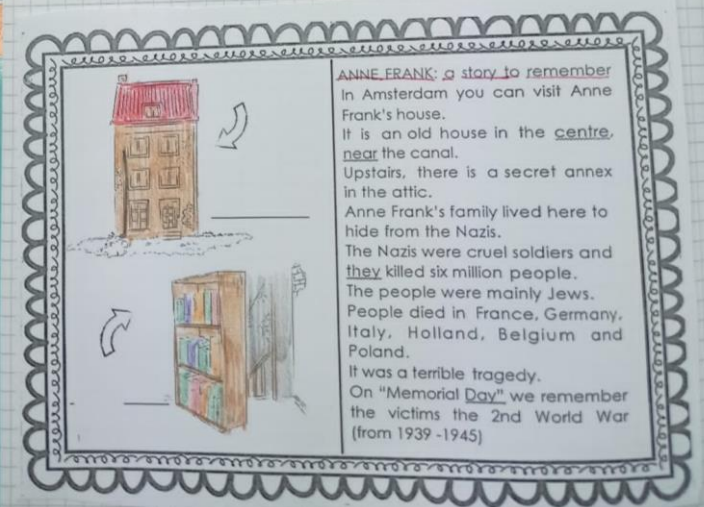 ANNE FRANK: a story to remember
In Amsterdam you can visit Anne
Frank's house.
It is an old house in the centre,
near the canal.
Upstairs, there is a secret annex
in the attic.
Anne Frank's family lived here to
hide from the Nazis.
The Nazis were cruel soldiers and
they killed six million people.
The people were mainly Jews.
People died in France, Germany,
Italy, Holland, Belgium and
Poland.
It was a terrible tragedy.
On "Memorial Day" we remember
the victims the 2nd World War
(from 1939 -1945)